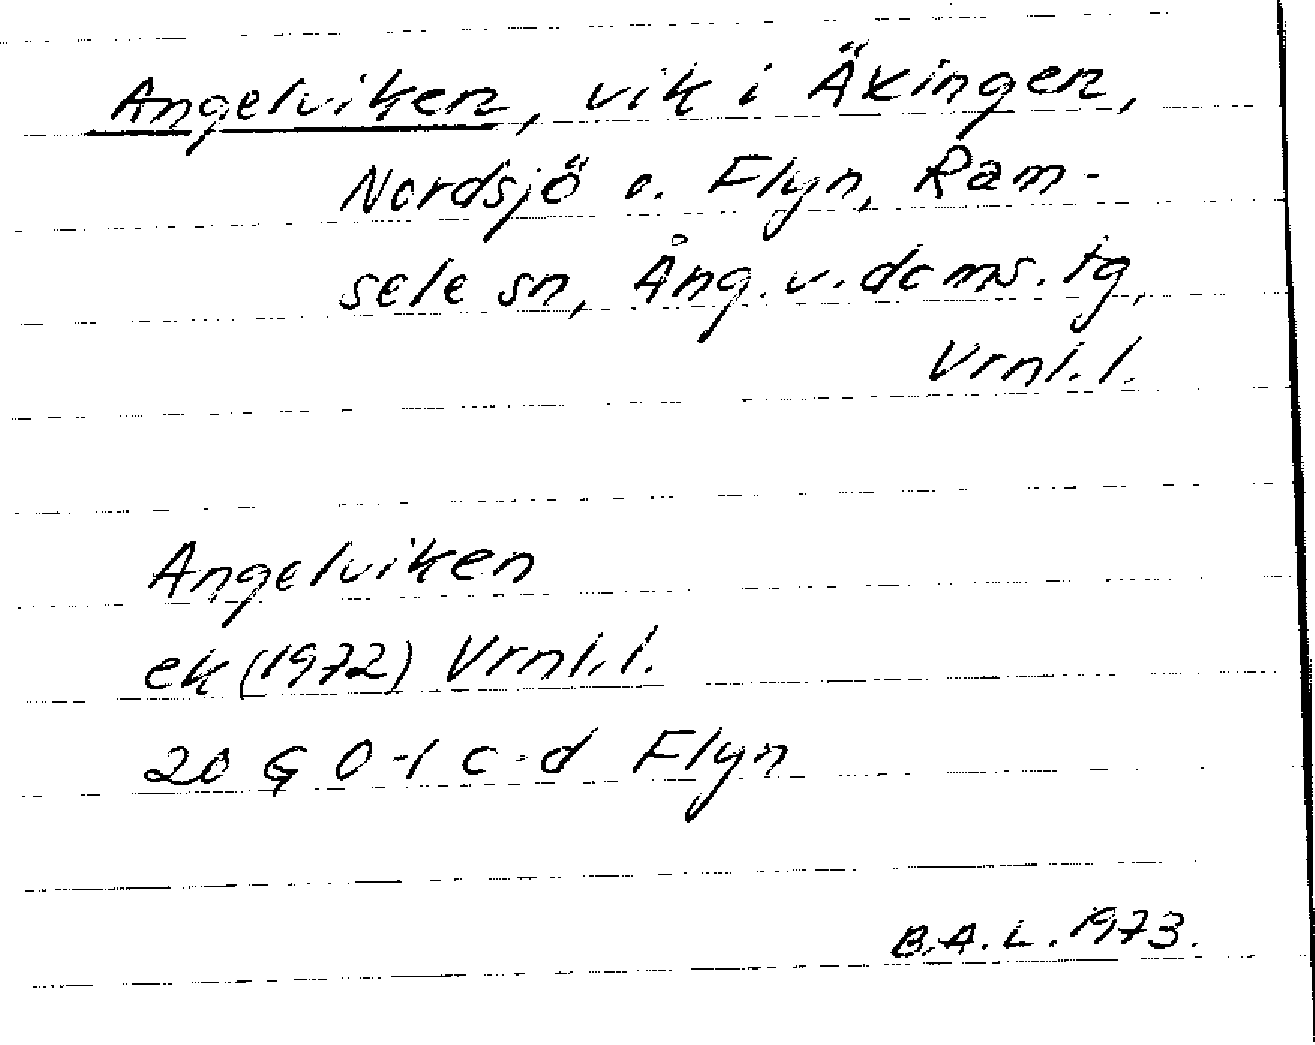 Angelviken, vik i Äxingen,
Nordsjö o. Flyn, Ram-
sele sn, Ång. v. doms. tg,
Vrnl. l.
Angelviken
ek (1972) Vrnl. l.
20 G 0-1 c-d Flyn
B.A.L. 1973.